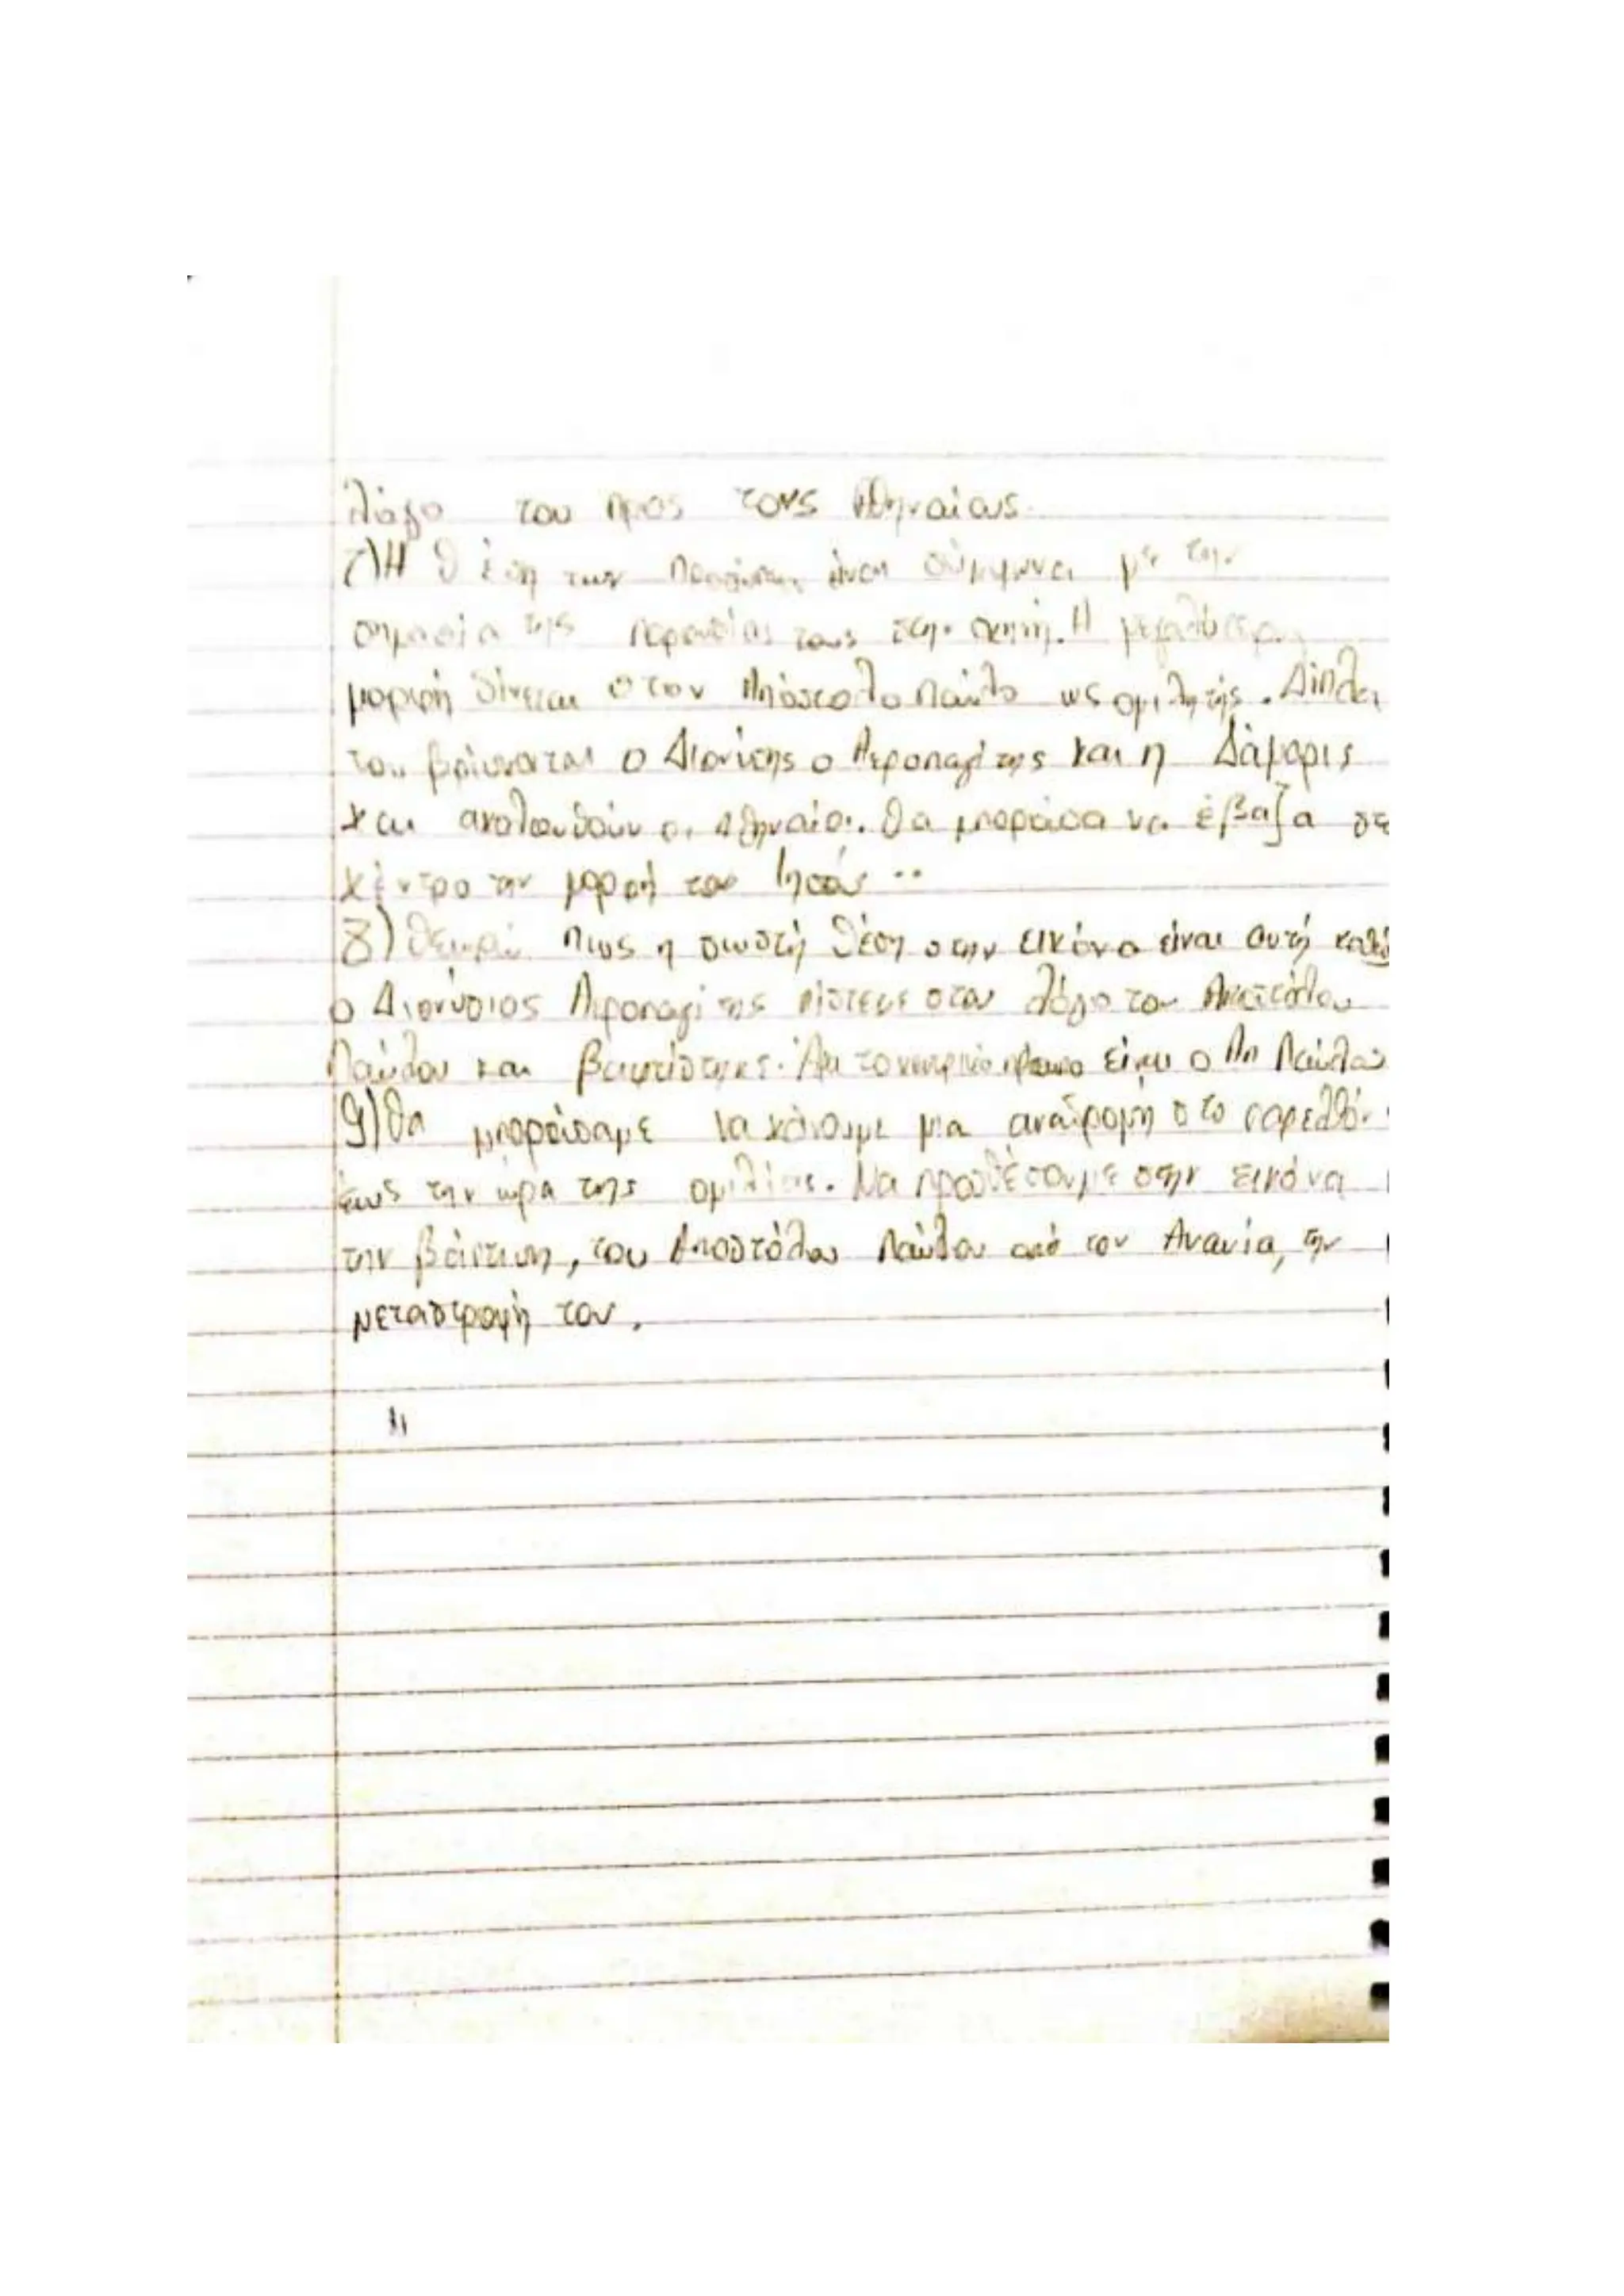 λόγο του προς τους Αθηναίους.
7) Η θέση των προσώπων είναι σύμφωνα με την
σημασία της παρουσίας τους στην σκηνή. Η μεγαλύτερη
μορφή δίνεται στον Απόστολο Παύλο ως ομιλητής. Δίπλα
του βρίσκονται ο Διονύσης ο Αεροπαγίτης και η Δάμαρις
και ακολουθούν οι Αθηναίοι. Θα μπορούσα να έβαζα σε
κέντρο την μορφή του Ιησού..
8) Θεωρώ πως η σωστή θέση στην εικόνα είναι αυτή καθώς
ο Διονύσιος Αεροπαγίτης πίστεψε στον λόγο του Αποστόλου
Παύλου και βαφτίστηκε. το κεντρικό είναι ο Απ Παύλου
9) Θα μπορούσαμε να κάνουμε μια αναδρομή στο παρελθόν
έως την ώρα της ομιλίας. Να προσθέσουμε στην εικόνα
την βάπτιση, του Αποστόλου Παύλου από τον Ανανία, την
μεταστροφή του.